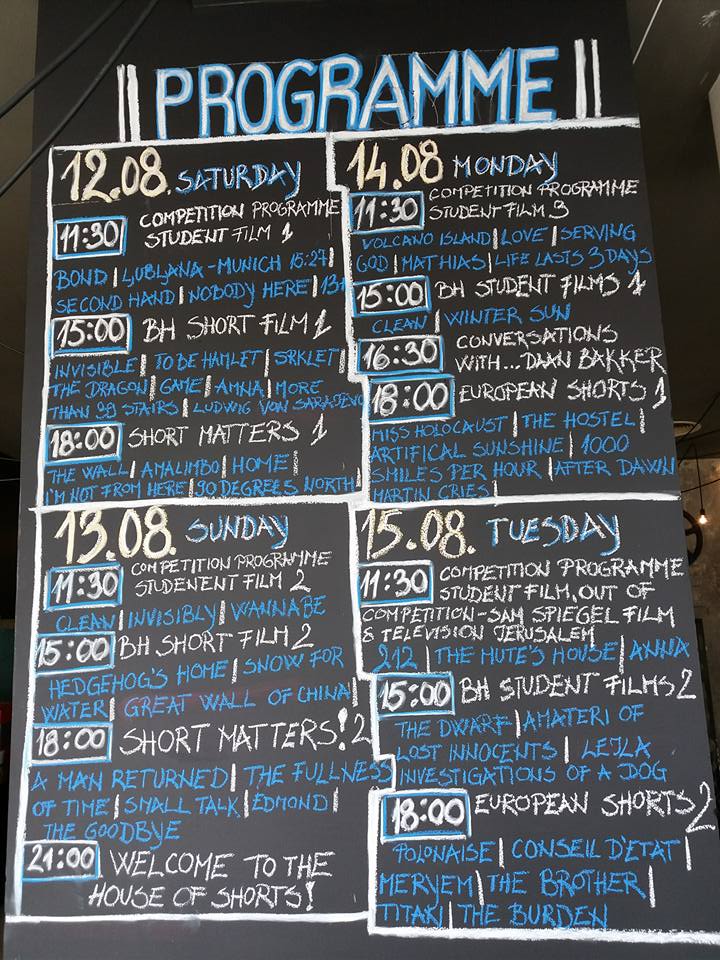 PROGRAMME
12.08. SATURDAY
11:30 COMPETITION PROGRAMME
STUDENT FILM 1
BOND | LJUBLJANA - MUNICH 15:27 |
SECOND HAND | NOBODY HERE | 13+
15:00 BH SHORT FILM 1
INVISIBLE | TO BE HAMLET | SRKLET |
THE DRAGON | GAME | AMNA | MORE
THAN 98 STAIRS | LUDWIG VON SARAJEVO
18:00 SHORT MATTERS 1
THE WALL | AMALIMBO | HOME |
I'M NOT FROM HERE | 90 DEGREES NORTH |
13.08. SUNDAY
11:30 COMPETITION PROGRAMME
STUDENENT FILM 2
CLEAN | INVISIBLY | WANNABE
15:00 BH SHORT FILM 2
HEDGEHOG'S HOME | SNOW FOR
WATER | GREAT WALL OF CHINA |
18:00 SHORT MATTERS! 2
A MAN RETURNED | THE FULLNESS
OF TIME | SMALL TALK | EDMOND |
THE GOODBYE
21:00 WELCOME TO THE
HOUSE OF SHORTS!
14.08 MONDAY
11:30 COMPETITION PROGRAMME
STUDENT FILM 3
VOLCANO ISLAND | LOVE | SERVING
GOD | MATHIAS | LIFE LASTS 3 DAYS
15:00 BH STUDENT FILMS 1
CLEAN | WINTER SUN
16:30 CONVERSATIONS
WITH... DAAN BAKKER
18:00 EUROPEAN SHORTS 1
MISS HOLOCAUST | THE HOSTEL |
ARTIFICAL SUNSHINE | 1000
SMILES PER HOUR | AFTER DAWN
MARTIN CRIES |
15.08. TUESDAY
11:30 COMPETITION PROGRAMME
STUDENT FILM, OUT OF
COMPETITION - SAM SPIEGEL FILM
& TELEVISION JERUSALEM
212 | THE MUTE'S HOUSE | ANNA
15:00 BH STUDENT FILMS 2
THE DWARF | AMATERI OF
LOST INNOCENTS | LEJLA
INVESTIGATIONS OF A DOG
18:00 EUROPEAN SHORTS 2
POLONAISE | CONSEIL D'ETAT |
MERYEM | THE BROTHER |
TITAKI | THE BURDEN